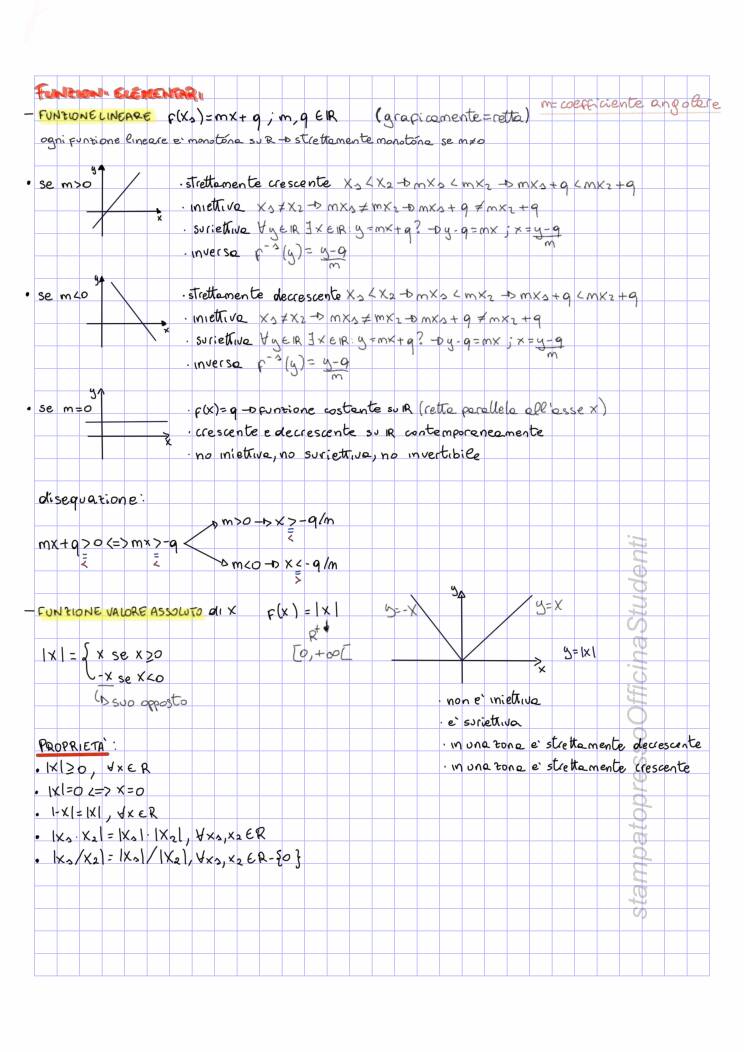 FUNZIONI ELEMENTARI
m=coefficiente angolare
- FUNZIONE LINEARE f(x₁)=mx+q ; m,q∈ℝ (graficamente=retta)
ogni funzione lineare e' monotóna su ℝ → strettamente monotóna se m≠0
• se m>0
y
x
· strettamente crescente x₁<x₂ → mx₁<mx₂ → mx₁+q<mx₂+q
· iniettiva x₁≠x₂ → mx₁≠mx₂ → mx₁+q≠mx₂+q
· suriettiva ∀y∈ℝ ∃x∈ℝ: y=mx+q? → y-q=mx ; x=(y-q)/m
· inversa f⁻¹(y)=(y-q)/m
• se m<0
y
x
· strettamente decrescente x₁<x₂ → mx₁<mx₂ → mx₁+q<mx₂+q
· iniettiva x₁≠x₂ → mx₁≠mx₂ → mx₁+q≠mx₂+q
· suriettiva ∀y∈ℝ ∃x∈ℝ: y=mx+q? → y-q=mx ; x=(y-q)/m
· inversa f⁻¹(y)=(y-q)/m
• se m=0
y
x
· f(x)=q → funzione costante su ℝ (retta parallela all'asse x)
· crescente e decrescente su ℝ contemporaneamente
· no iniettiva, no suriettiva, no invertibile
disequazione:
m>0 → x ≥ -q/m
<
mx+q ≥ 0 <=> mx ≥ -q
< <
m<0 → x ≤ -q/m
>
- FUNZIONE VALORE ASSOLUTO di x f(x)=|x|
R⁺
[0,+∞[
|x|={ x se x≥0
-x se x<0
↳ suo opposto
y
y=-x
y=x
x
y=|x|
· non e' iniettiva
· e' suriettiva
· in una zona e' strettamente decrescente
· in una zona e' strettamente crescente
PROPRIETA':
• |x|≥0, ∀x∈R
• |x|=0 <=> x=0
• |-x|=|x|, ∀x∈R
• |x₁·x₂|=|x₁|·|x₂|, ∀x₁,x₂∈R
• |x₁/x₂|=|x₁|/|x₂|, ∀x₁,x₂∈R-{0}
stampatopressoOfficinaStudenti